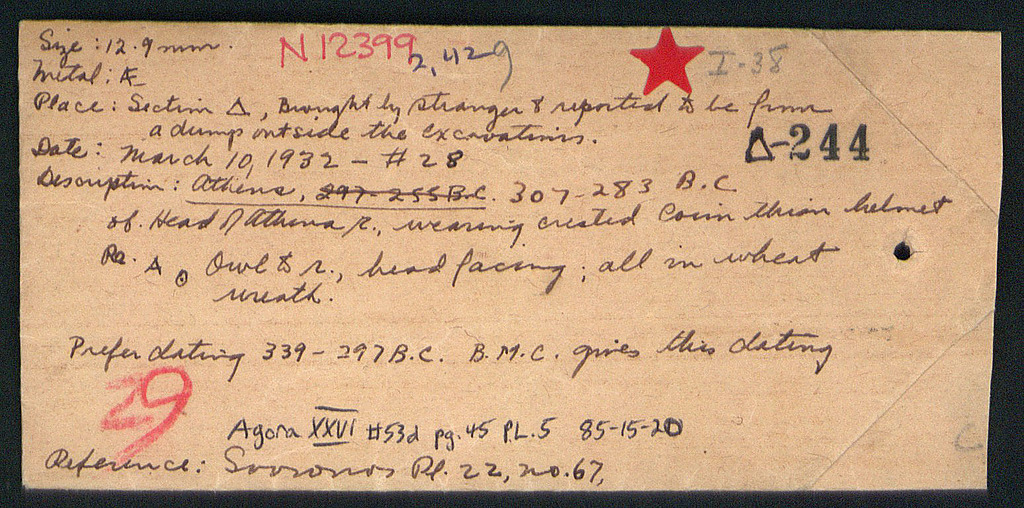 Size: 12.9 mm. N 12399 2,429 I-38
Metal: Æ
Place: Section Δ, Brought by stranger & reported to be from
a dump outside the excavations. Δ-244
Date: March 10, 1932 - #28
Description: Athens, 297-255 B.C. 307-283 B.C
ob. Head of Athena r., wearing crested Corinthian helmet
Re. A Θ Owl to r., head facing; all in wheat
wreath.
Prefer dating 339-297 B.C. B.M.C. gives this dating
29
Agora XXVI #53d pg. 45 PL. 5 85-15-20
Reference: Svoronos Pl. 22, no. 67,